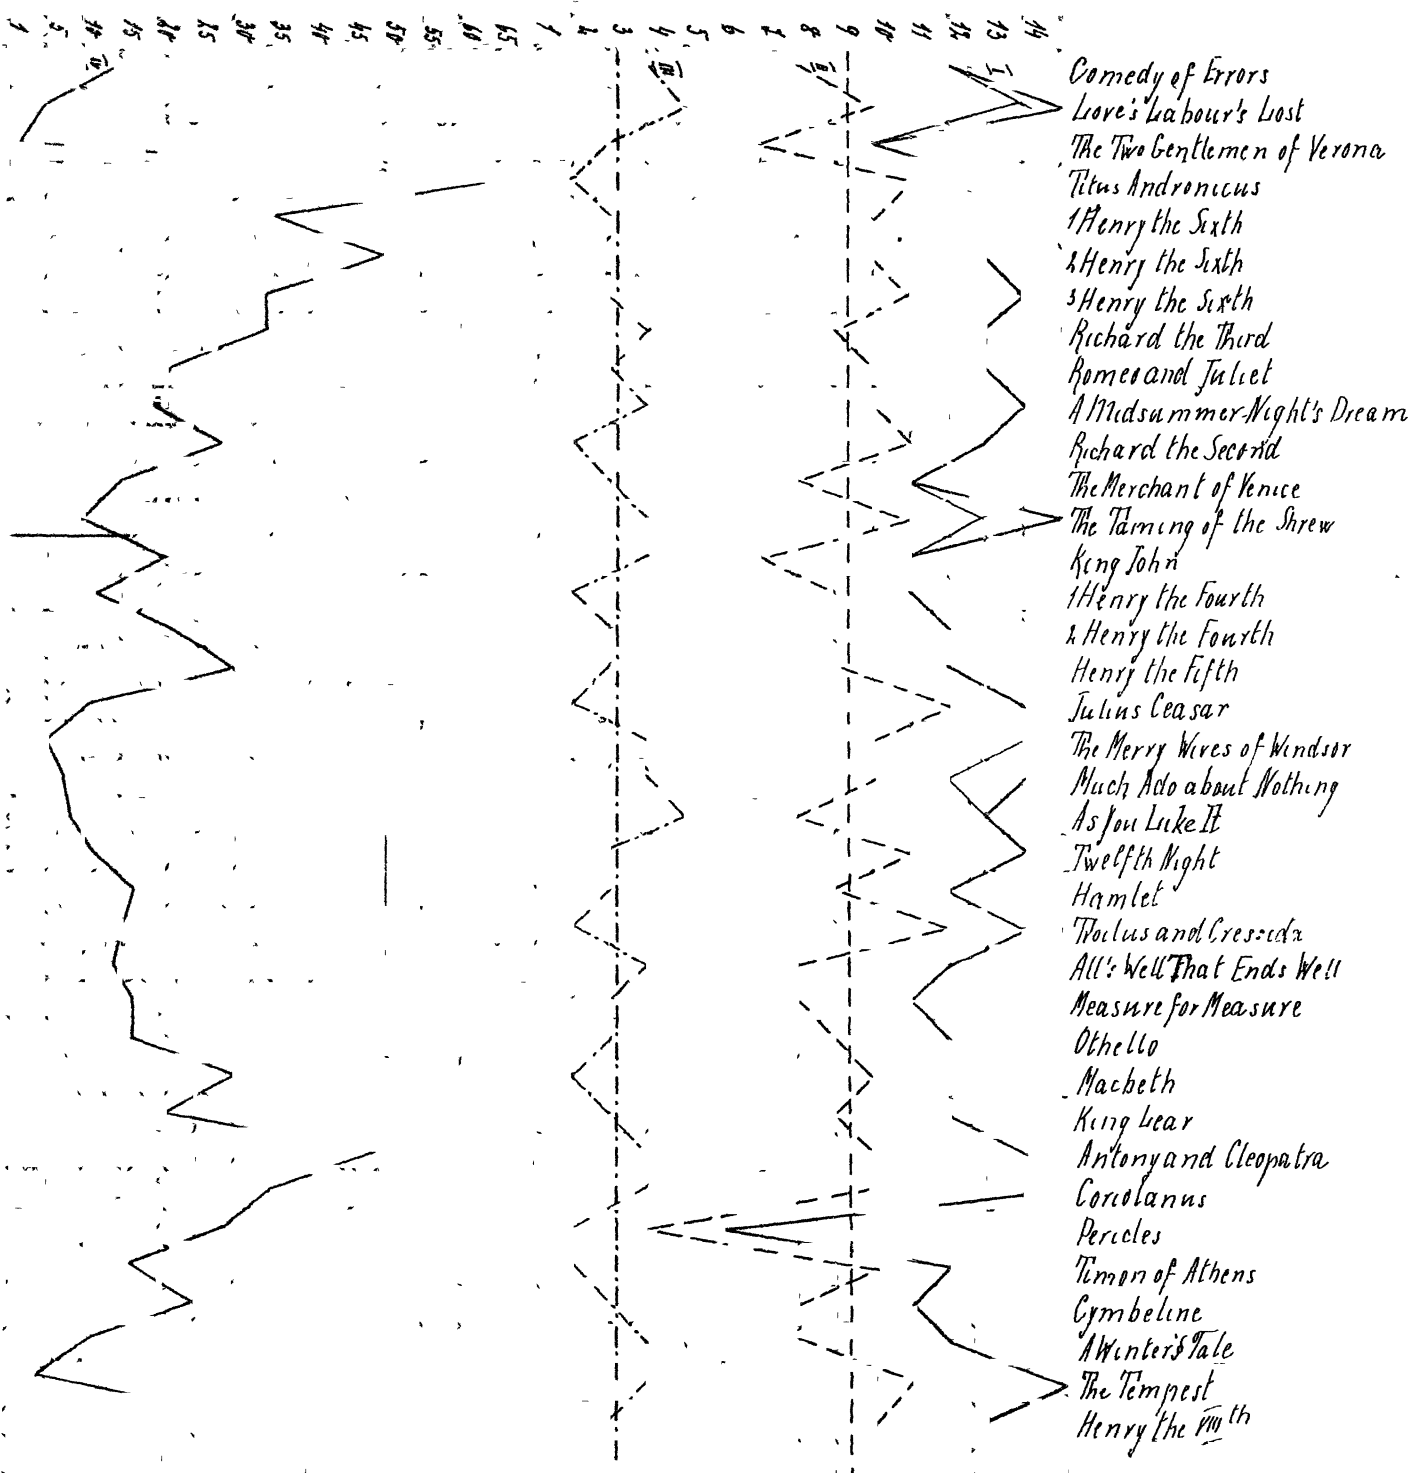 1 5 10 15 20 25 30 35 40 45 50 55 60 65 1 2 3 4 5 6 7 8 9 10 11 12 13 14
IV III II I
Comedy of Errors
Love's Labour's Lost
The Two Gentlemen of Verona
Titus Andronicus
1 Henry the Sixth
2 Henry the Sixth
3 Henry the Sixth
Richard the Third
Romeo and Juliet
A Midsummer-Night's Dream
Richard the Second
The Merchant of Venice
The Taming of the Shrew
King John
1 Henry the Fourth
2 Henry the Fourth
Henry the Fifth
Julius Ceasar
The Merry Wives of Windsor
Much Ado about Nothing
As You Like It
Twelfth Night
Hamlet
Troilus and Cressida
All's Well That Ends Well
Measure for Measure
Othello
Macbeth
King Lear
Antony and Cleopatra
Coriolanus
Pericles
Timon of Athens
Cymbeline
A Winter's Tale
The Tempest
Henry the VIIIth